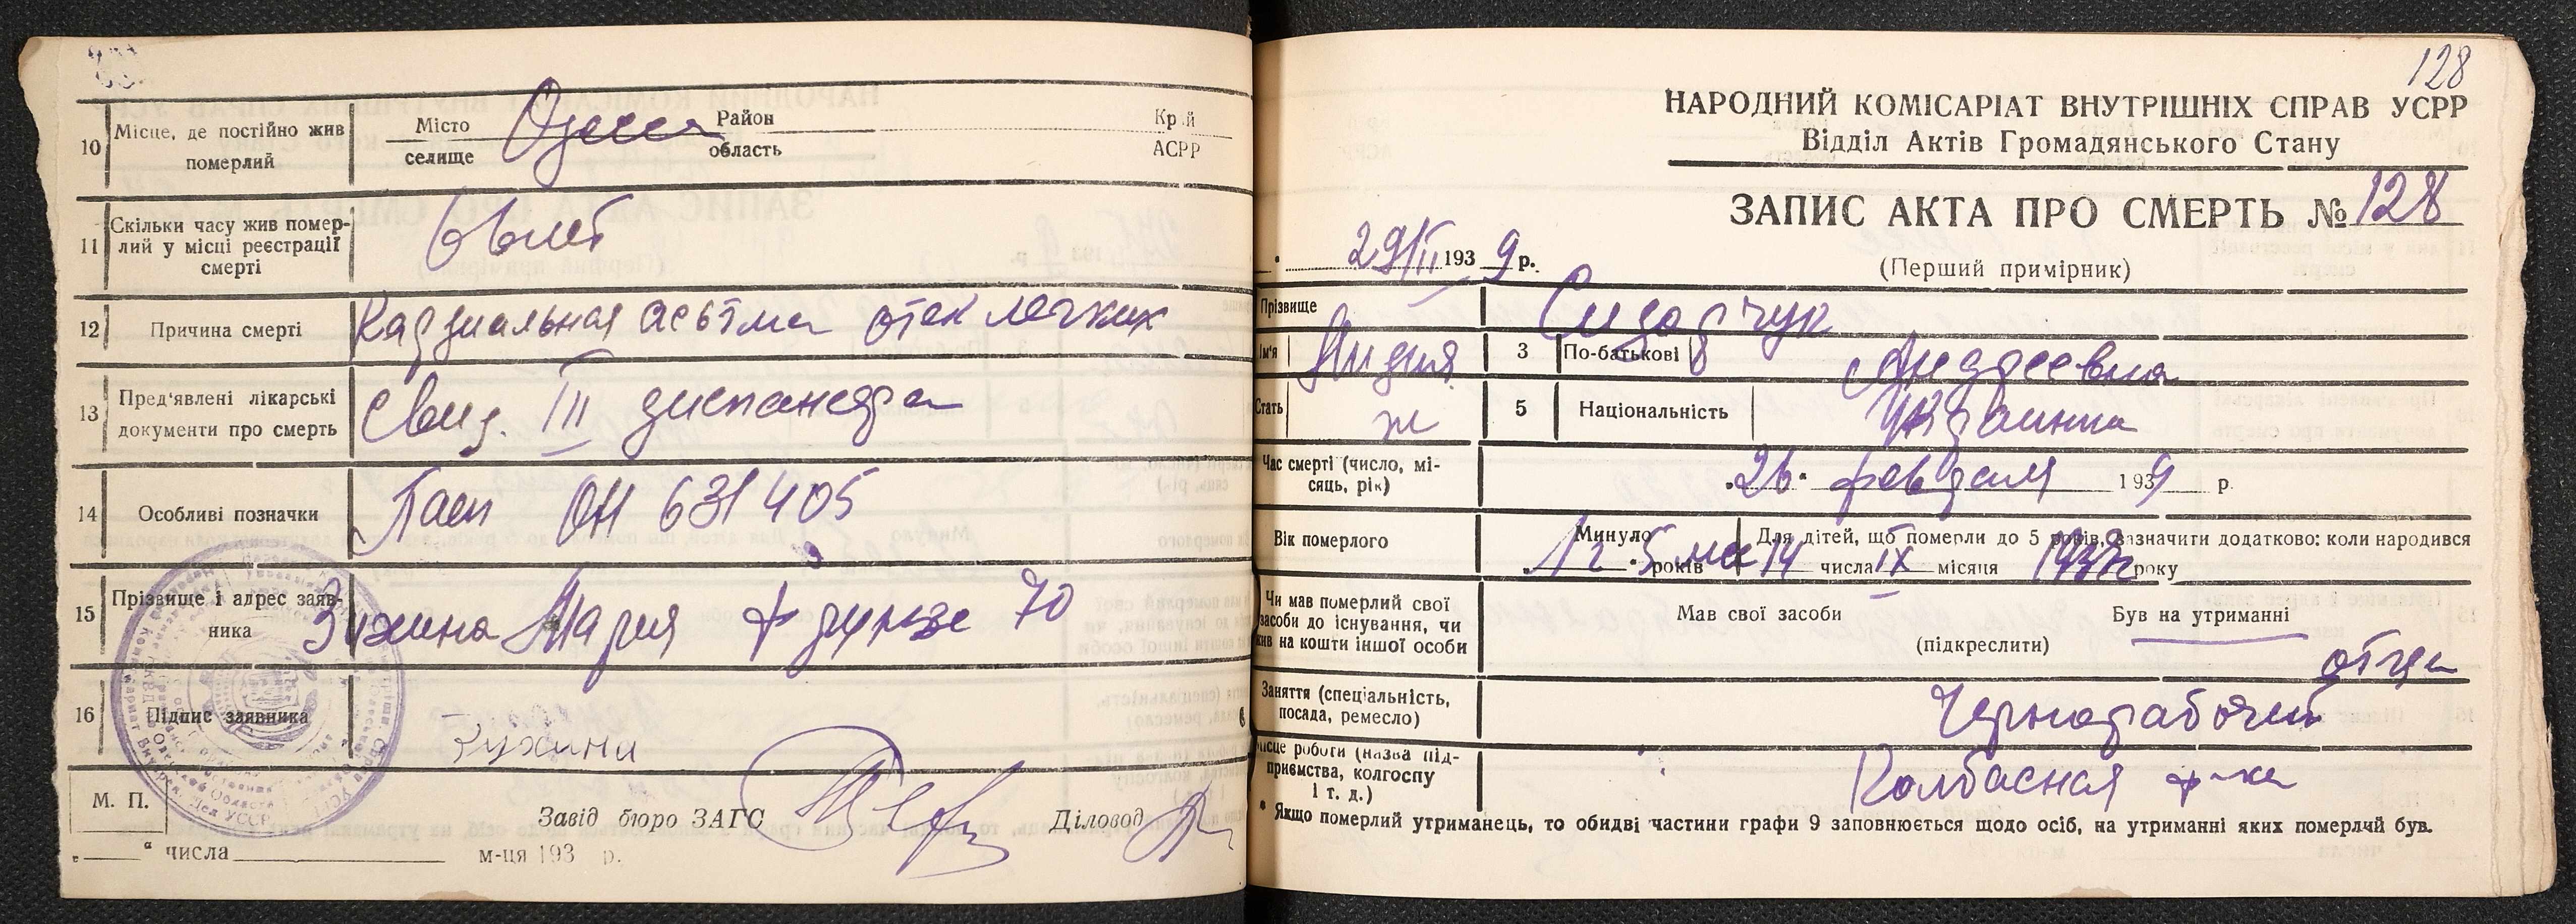 10
Місце, де постійно жив
померлий
Місто
селище
Одесса
Район
область
Край
АСРР
11
Скільки часу жив помер-
лий у місці реєстрації
смерті
12
Причина смерті
Кардиальная астма отек легких
13
Пред'явлені лікарські
документи про смерть
Свид. III диспансера
14
Особливі позначки
Пасп ОН 631405
15
Прізвище і адрес заяв-
ника
Мария Фрунзе 70
16
Підпис заявника
М. П.
Завід бюро ЗАГС
Діловод
„ “ числа м-ця 193 р.
128
НАРОДНИЙ КОМІСАРІАТ ВНУТРІШНІХ СПРАВ УСРР
Відділ Актів Громадянського Стану
ЗАПИС АКТА ПРО СМЕРТЬ № 128
29/II 1939 р.
(Перший примірник)
Прізвище
Сидорчук
Ім'я
Лидия
3
По-батькові
Андреевна
Стать
ж
5
Національність
Украинка
Час смерті (число, мі-
сяць, рік)
26 февраля 1939 р.
Вік померлого
Минуло
1 г. 5 мес
років
Для дітей, що померли до 5 років, зазначити додатково: коли народився
14 числа IX місяця 1937 року
Чи мав померлий свої
засоби до існування, чи
жив на кошти іншої особи
Мав свої засоби
Був на утриманні
(підкреслити)
отца
Заняття (спеціальність,
посада, ремесло)
Чернорабочий
Місце роботи (назва під-
приємства, колгоспу
і т. д.)
Колбасная ф-ка
* Якщо померлий утриманець, то обидві частини графи 9 заповнюється щодо осіб, на утриманні яких померлий був.